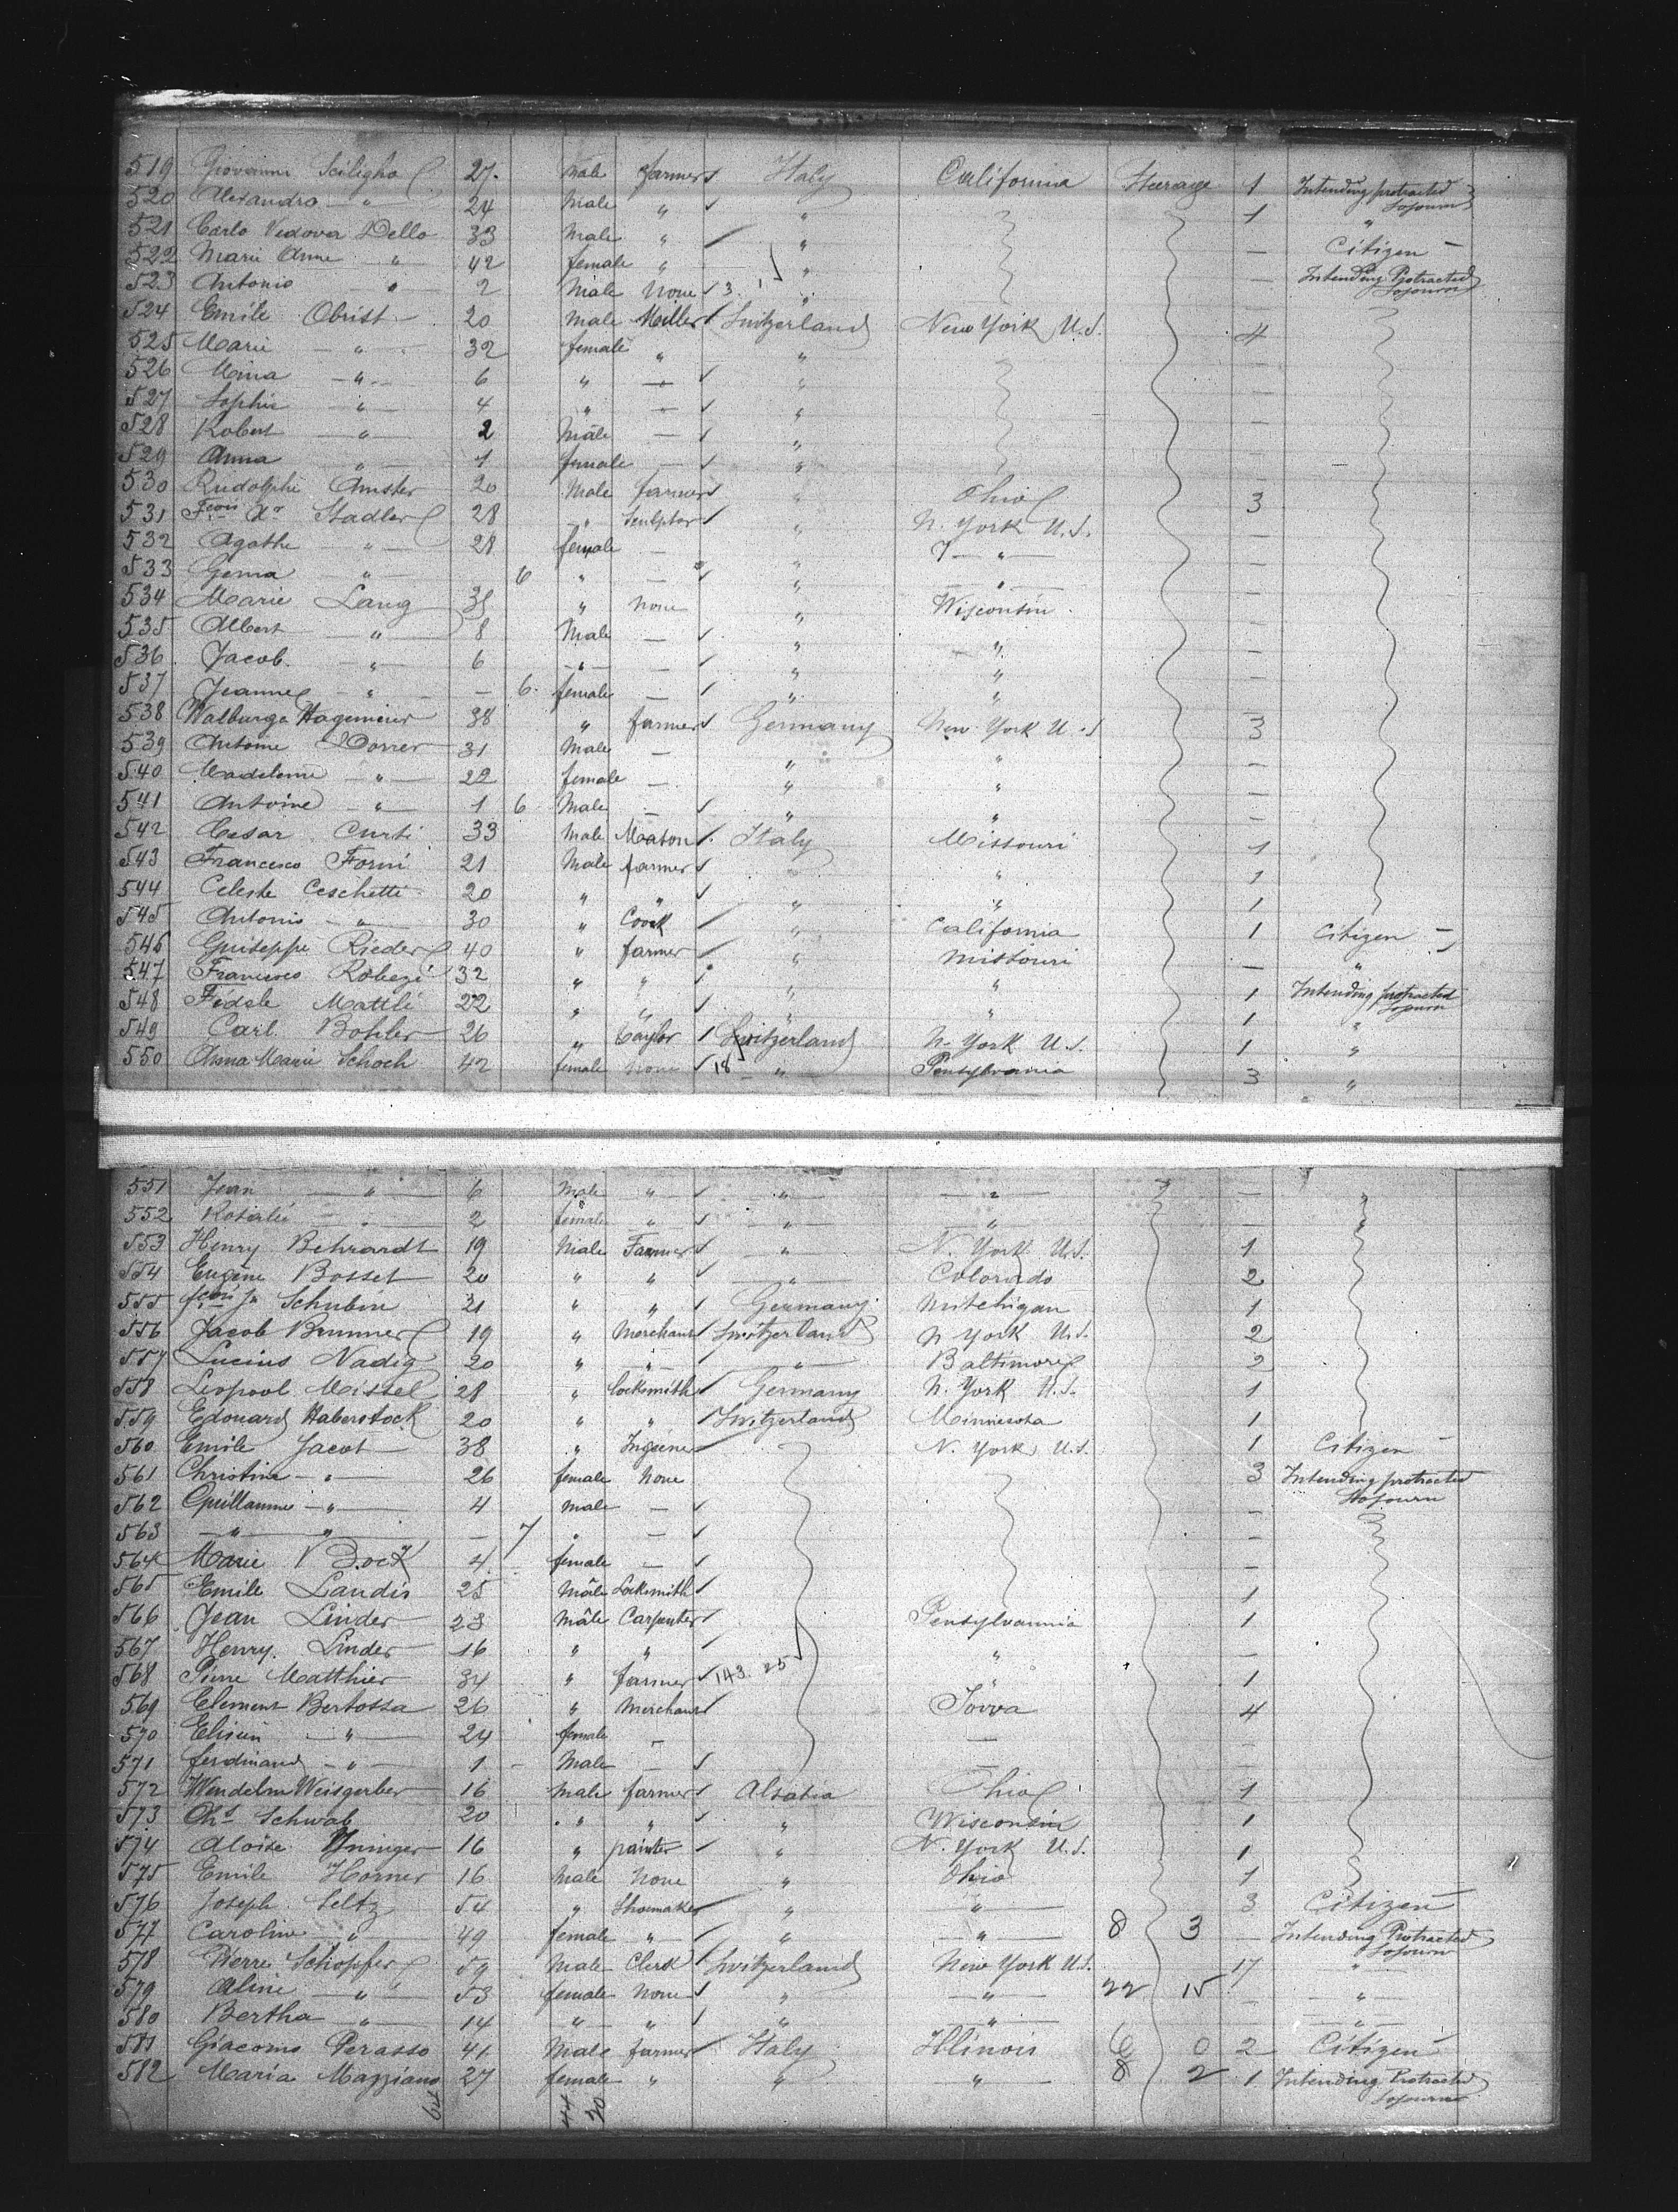 519 Giovanni Sciligho 27 Male farmer Italy California Steerage 1 Intending protracted Sojourn
520 Alexandro " 24 Male " " 1 "
521 Carlo Vedova Dello 33 Male " " — Citizen —
522 Marie Anne " 42 female " " — Intending Protracted Sojourn
523 Antonio " 2 Male None 3 " —
524 Emile Obrist 20 Male Miller Switzerland New York U.S. 4
525 Marie " 32 female " " —
526 Mina " 6 " — " —
527 Sophie " 4 " — " —
528 Robert " 2 Mâle — " —
529 Anna " 1 female — " —
530 Rudolphe Amsler 20 Male farmer " Ohio 3
531 Fçois Xr Stadler 28 " Sculptor " N. York U.S. —
532 Agathe " 28 female — " " —
533 Gema " 6 " — " " —
534 Marie Lang 38 " None " Wisconsin —
535 Albert " 8 Male — " —
536 Jacob " 6 " — " " —
537 Jeanne " — 6 female — " " —
538 Walburga Hagemeier 38 " farmer Germany New York U.S 3
539 Antoine Dorrer 31 Male — " " —
540 Madeleine " 22 female — " " —
541 Antoine " 1 6 Male — " " —
542 Cesar Curti 33 Male Mason Italy Missouri 1
543 Francesco Forni 21 Male farmer " " 1
544 Celeste Ceschetti 20 " " " " 1
545 Antonio " 30 " Coock " California 1 Citizen —
546 Guiseppe Rieder 40 " farmer " Missouri — "
547 Francesco Robezi 32 " " " " 1 Intending protracted Sojourn
548 Fidele Mattli 22 " " " " 1 "
549 Carl Bohler 26 " Taylor Switzerland N. York U.S. 1 "
550 Anna Marie Schoch 42 female None 18 " Pensylvania 3 "
551 Jean " 6 Male " " " —
552 Rosalie " 2 female " " " —
553 Henry Behrardt 19 Male Farmer " N. York U.S. 1
554 Eugène Bosset 20 " " " Colorado 2
555 fçois Jh Schubin 21 " " Germany Mitchigan 1
556 Jacob Brunner 19 " Merchant Switzerland N York U.S. 2
557 Lucius Nadig 20 " " " Baltimore 2
558 Leopool Missel 28 " Locksmith Germany N. York U.S. 1
559 Edouard Haberstock 20 " " Switzerland Minnesota 1
560 Emile Jacot 38 " Ingéner N. York U.S. 1 Citizen —
561 Christine " 26 female None 3 Intending protracted Sojourn
562 Guillaume " 4 male — —
563 " " — 7 " — —
564 Marie Bock 4 female — —
565 Emile Landis 25 Mâle Locksmith 1
566 Jean Linder 23 Mâle Carpenter Pensylvannia 1
567 Henry Linder 16 " " " —
568 Pierre Matthier 34 " farmer 143. 25 " 1
569 Clement Bertossa 26 " Merchant Iowa 4
570 " 24 female — — —
571 ferdinand " 1 Male — —
572 Wendelin Weisgerber 16 Male farmer Alsatia Ohio 1
573 Chs Schwab 20 " " " Wisconsin 1
574 Aloïse 16 " painter " N. York U.S. 1
575 Emile Horner 16 Male None " Ohio 1
576 Joseph Seltz 54 " Shoemaker " " 3 Citizen —
577 Caroline " 49 female " " " 8 3 — Intending Protracted Sojourn
578 Pierre Schopfer 59 Male Clerk Switzerland New York U.S. 17 "
579 Aline " 53 female None " " 22 15 — "
580 Bertha " 14 " " " " — "
581 Giacomo Perasso 41 Male farmer Italy Illinois 6 0 2 Citizen —
582 Maria Mazziano 27 female " " " 8 2 1 Intending Protracted Sojourn